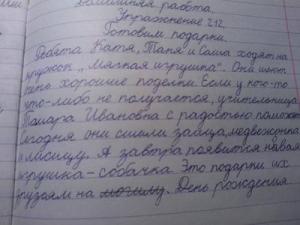 Домашняя работа.
Упражнение 212.
Готовим подарки.
Ребята Катя, Таня и Саша ходят на
кружок „Мягкая игрушка". Они шьют
очень хорошие поделки. Если у кого-то
что-либо не получается, учительница
Тамара Ивановна с радостью поможет.
Сегодня они сшили зайца, медвежонка
и лисицу. А завтра появится новая
игрушка - собачка. Это подарки их
друзьям на День рождения